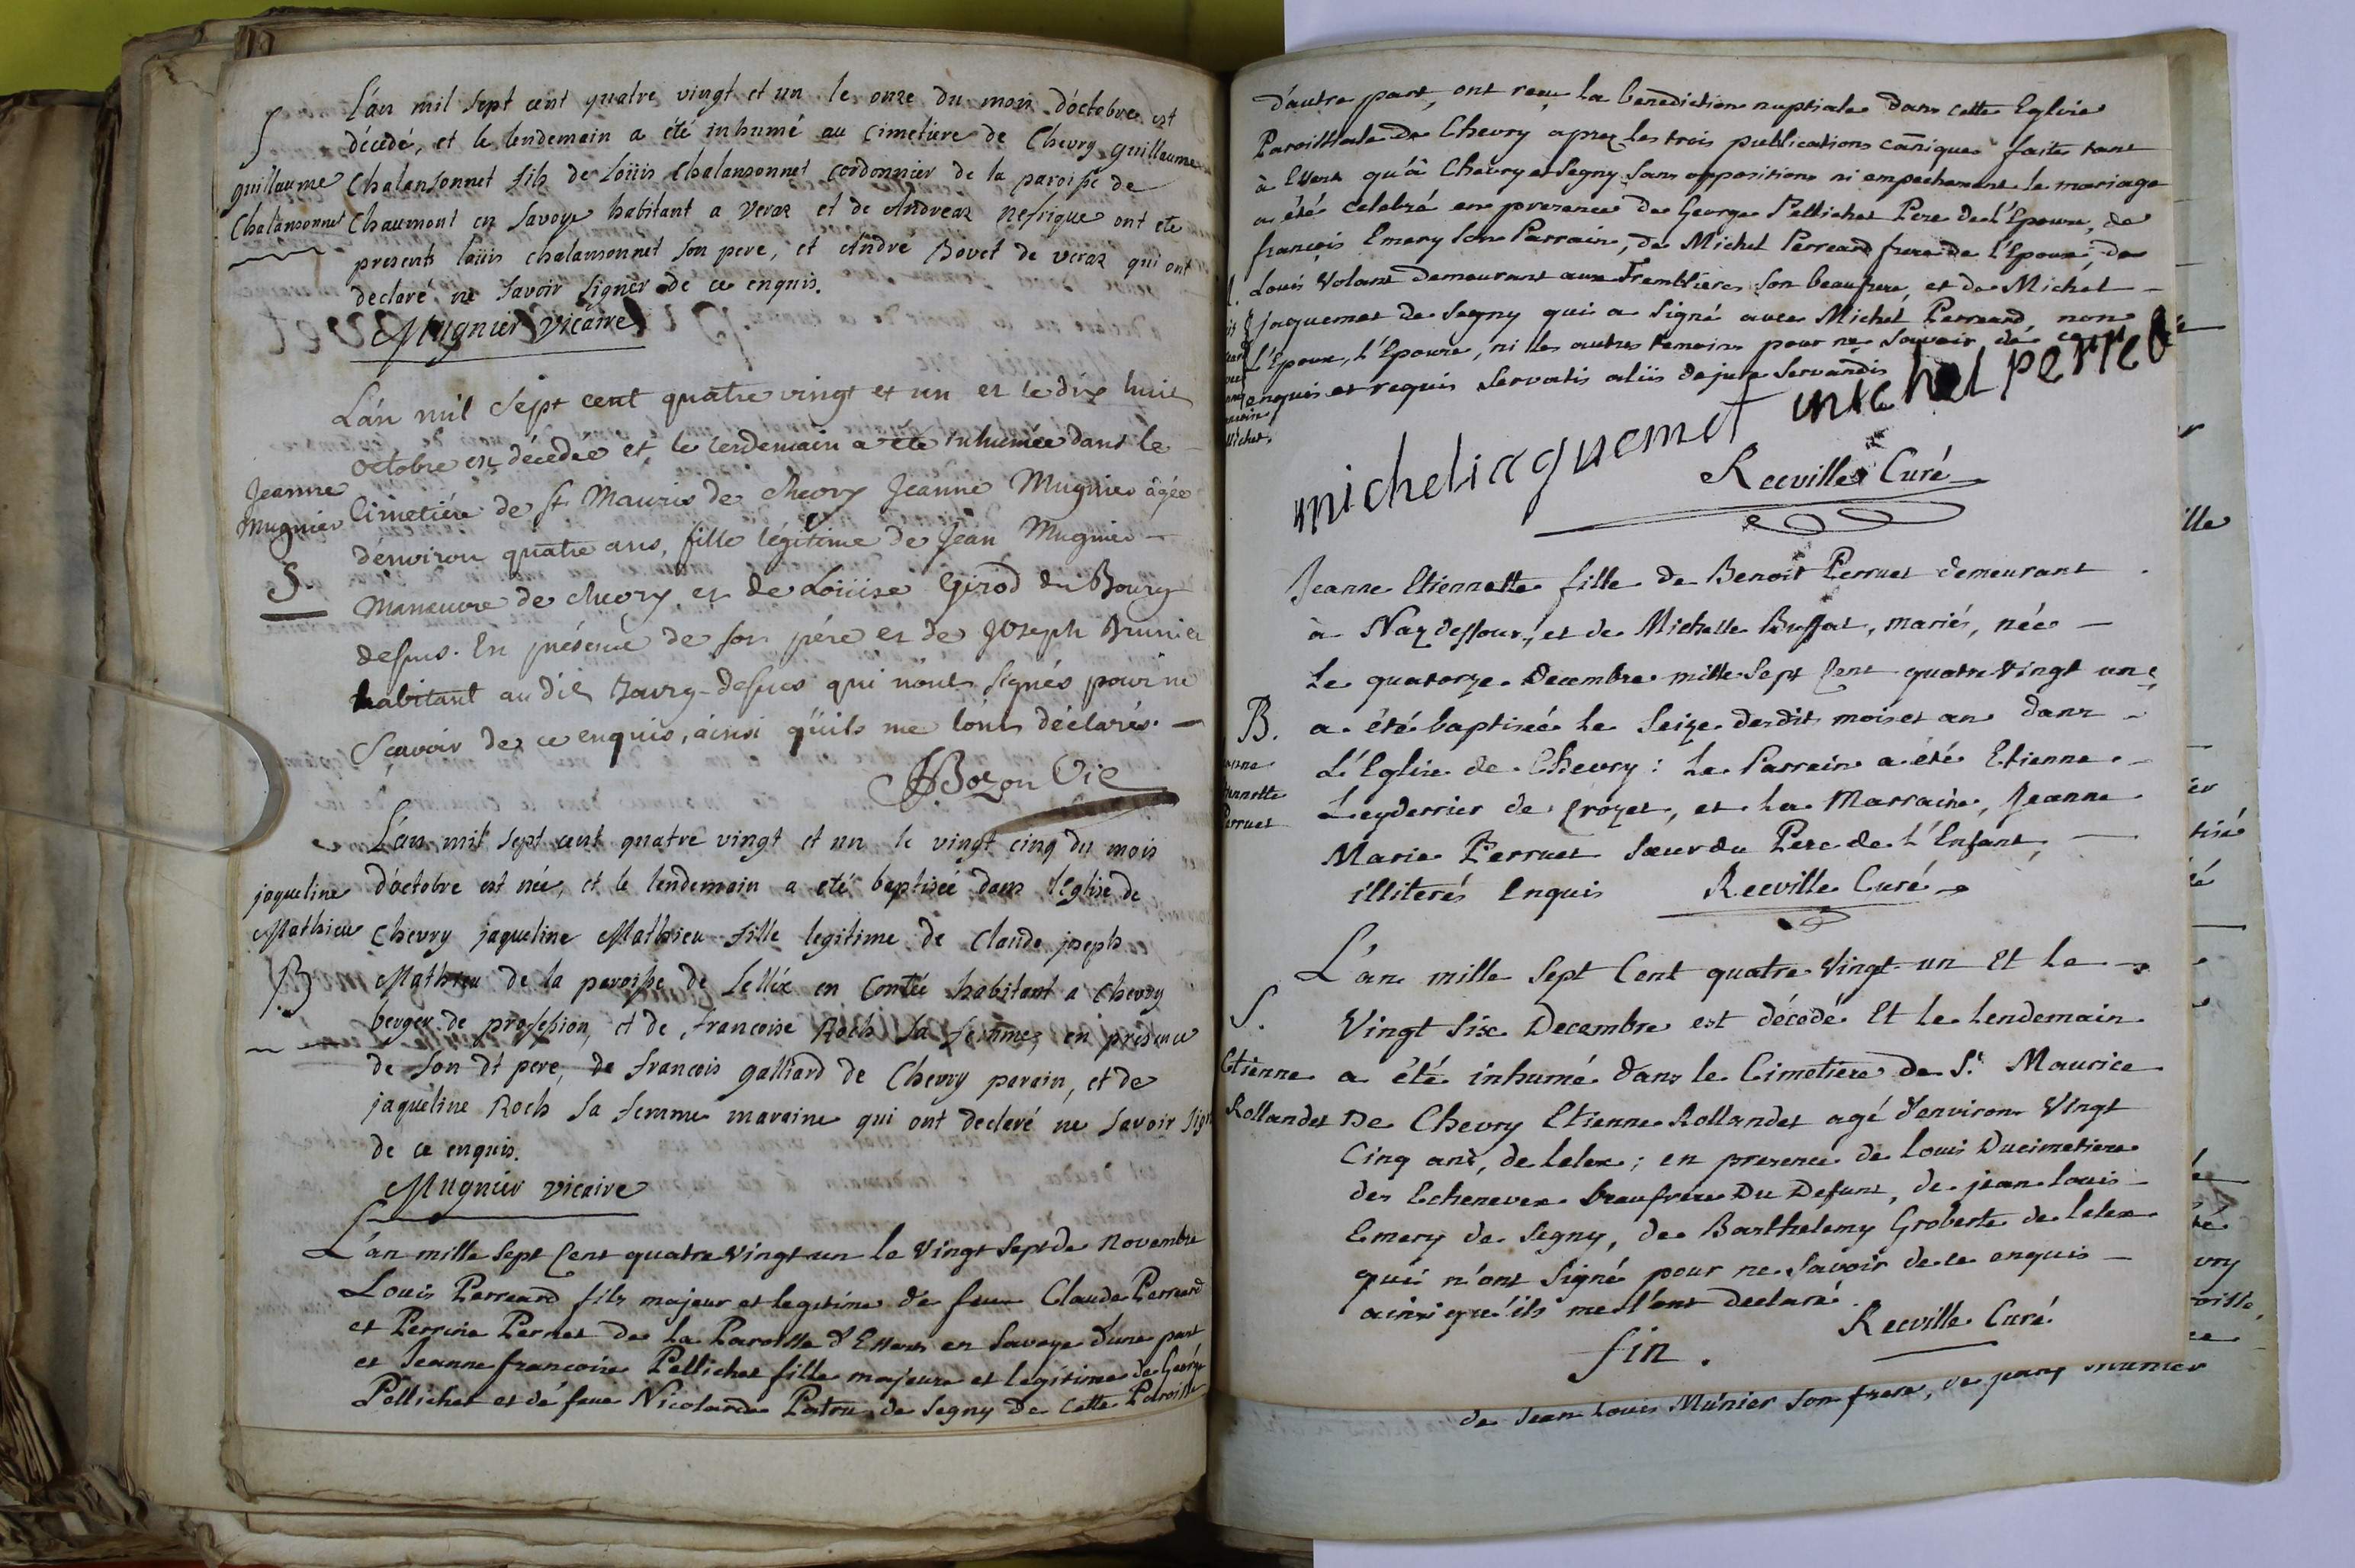 L'an mil sept cent quatre vingt et un le onze du mois d'octobre est
S décédé, et le lendemain a été inhumé au cimetiere de Chevry guillaume
guillaume Chalansonnet fils de Loüis Chalansonnet cordonnier de la paroisse de
Chalansonnet Chaumont en Savoye habitant a Veraz et de Andreaz nefrique ont ete
presents loüis chalansonnet son pere, et André Bovet de veraz qui ont
declaré ne savoir signer de ce enquis.
Mugnier vicaire
L'an mil sept cent quatre vingt et un et le dix huit
octobre est décedée et le lendemain a été inhumée dans le
Jeanne Cimetiére de st Mauris de chevry Jeanne Mugnier âgée
Mugnier d'environ quatre ans, fille légitime de Jean Mugnier
S. Manœuvre de chevry et de Loüise Girod du Bourg
dessus. En présence de son pére et de Joseph Brunier
habitant au dit Bourg-dessus qui n'ont signés pour ne
sçavoir de ce enquis, ainsi qu'ils me l'ont déclarés.
Bozon Vic
L'an mil sept cent quatre vingt et un le vingt cinq du mois
jaqueline d'octobre est née, et le lendemain a eté baptisée dans l'église de
Mathieu Chevry jaqueline Mathieu fille legitime de Claude joseph
B Mathieu de la paroisse de Lellix en Contée habitant a Chevry
berger de profession, et de francoise Roch sa femme, en presence
de son dt pere, de francois galliard de Chevry parain, et de
jaqueline Roch sa femme maraine qui ont declaré ne savoir sign
de ce enquis.
Mugnier vicaire
L'an mille sept Cent quatre vingt un le vingt sept de Novembre
Louis Perreard fils majeur et legitime de feu Claude Perreard
et Perrine Pernet de la Paroisse d'Essert en Savoye d'une part
et Jeanne françoise Pellichet fille majeure et legitime de George
Pellichet et de feue Nicolarde Patru de Segny de cette Paroisse
d'autre part, ont reçu la benediction nuptiale dans cette Eglise
Paroissiale de Chevry aprez les trois publications canniques faites tant
à Essert qu'à Chevry et Segny sans oppositions ni empechement le mariage
a été celebré en presence de George Pellichet Pere de l'Epouse, de
françois Emery son Parrain, de Michel Perreard frere de l'Epoux, de
Louis Volant demeurant aux Tremblieres son beaufrere, et de Michel
jaquemet de Segny qui a signé avec Michel Perreard, non
l'Epoux, l'Epouse, ni les autres temoins pour ne savoir de ce
enquis et requis servatis aliis de jure servandis
micheliaquemet michel perrea
Reeville Curé
Jeanne Etiennette fille de Benoit Perruet demeurant
à Naz dessous, et de Michelle Buffat, mariés, née
le quatorze Decembre mille sept Cent quatre vingt un,
B. a été baptisée le seize desdits mois et an dans
L'Eglise de Chevry: le Parrain a été Etienne
Leyderrier de Crozet, et la Marraine, Jeanne
Perruet Marie Perruet sœur du Pere de l'Enfant,
illiterés Enquis Reeville Curé
L'an mille sept Cent quatre vingt un Et le
S. Vingt six Decembre est décedé Et le lendemain
Etienne a été inhumé dans le Cimetiere de St. Maurice
Rollandet De Chevry Etienne Rollandet agé d'environ vingt
Cinq ans, de Lelex; en presence de Louis Ducimetiere
des Echenevex beaufrere Du Defunt, de jean louis
Emery de Segny, de Barthelemy Groberte de lelex
qui n'ont signé pour ne savoir de ce enquis
ainsi qu'ils me l'ont declaré. Reeville Curé
fin.
de Jean Louis Munier son frere, de